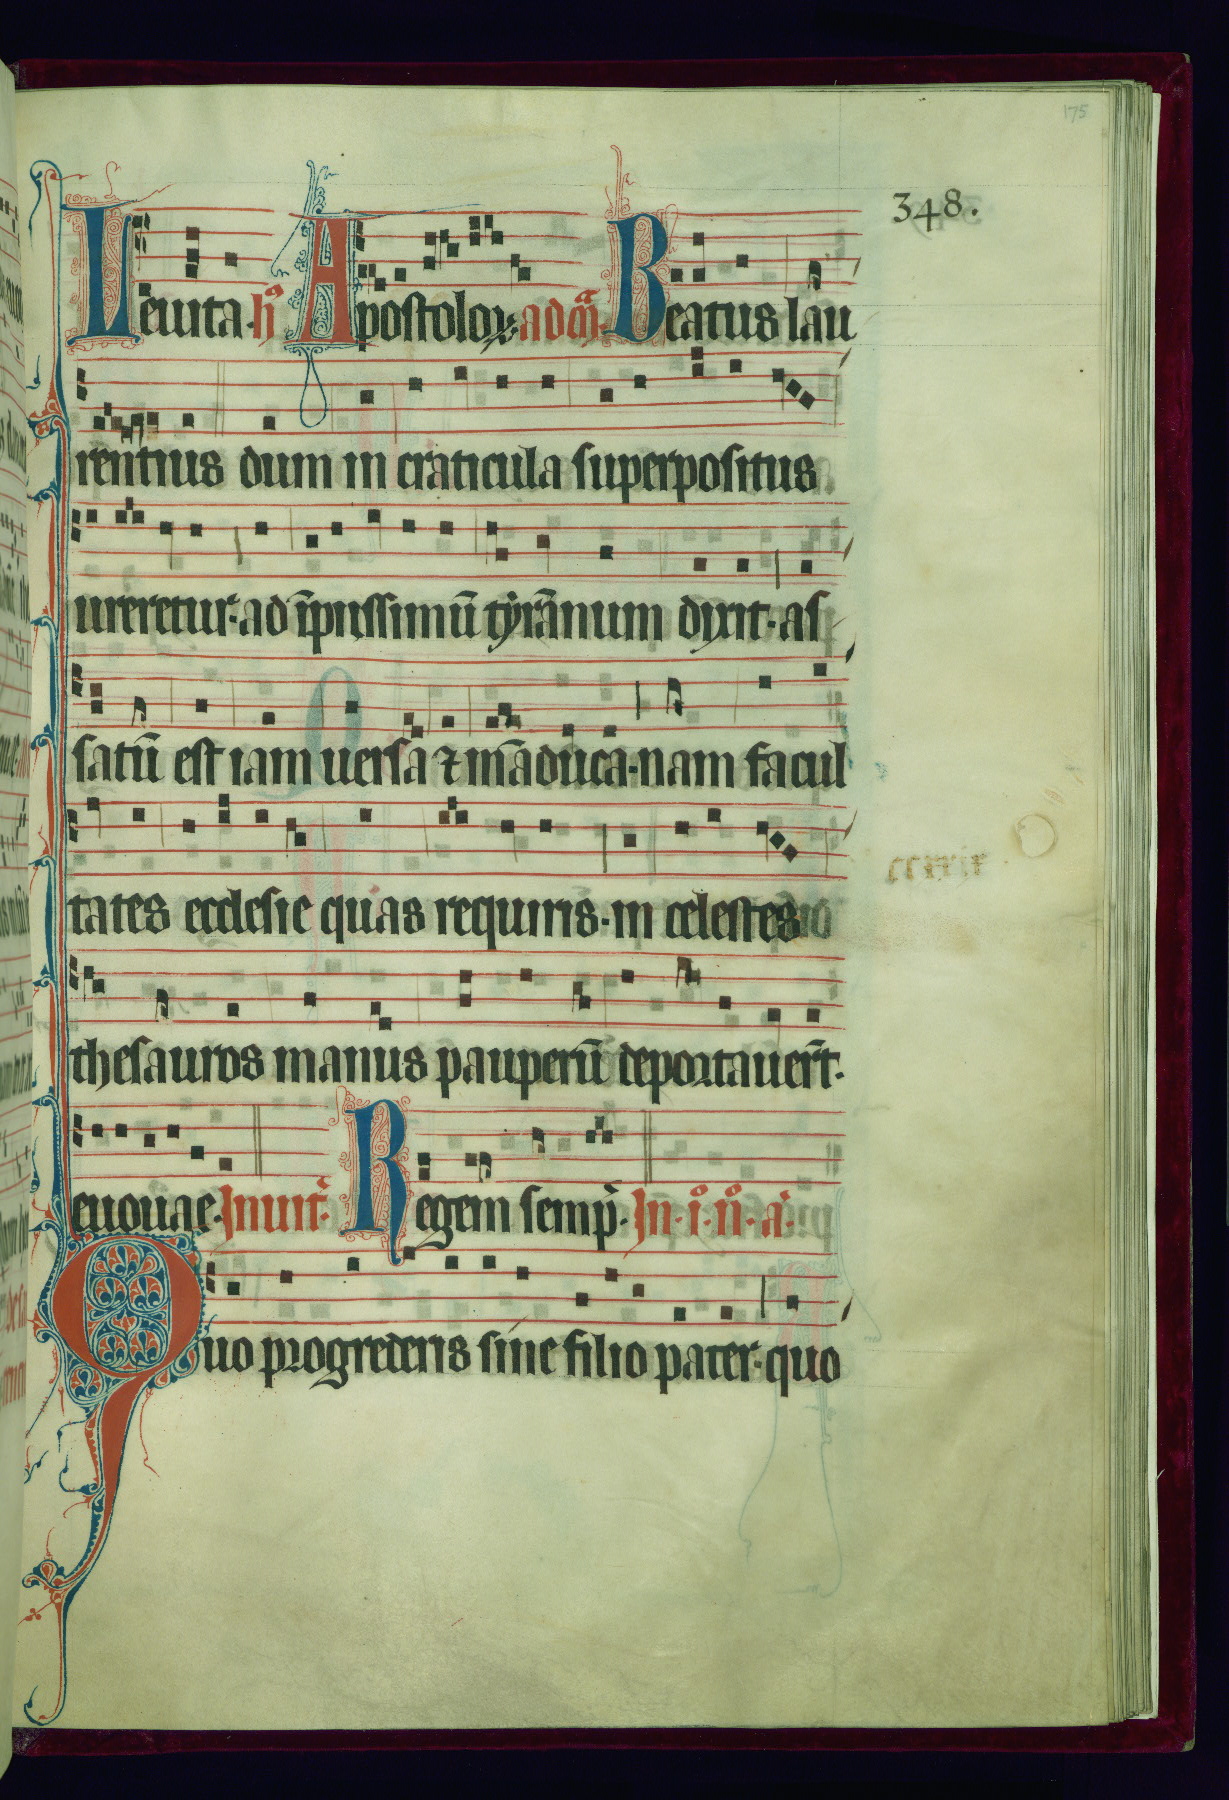 175
348.
Leuita. h̄ Apostoloꝝ. ad m̄. Beatus lau
rentius dum in craticula superpositus
ureretur. ad īpiissimū tyrānum dixit. as
satū est iam uersa ⁊ māduca. nam facul
tates ecclesie quas requiris. in celestes
thesauros manus pauperū deportauer̄t.
euouae. Inuit̄. Regem semp̄. In. i°. n°. a.
Quo progrederis sine filio pater. quo